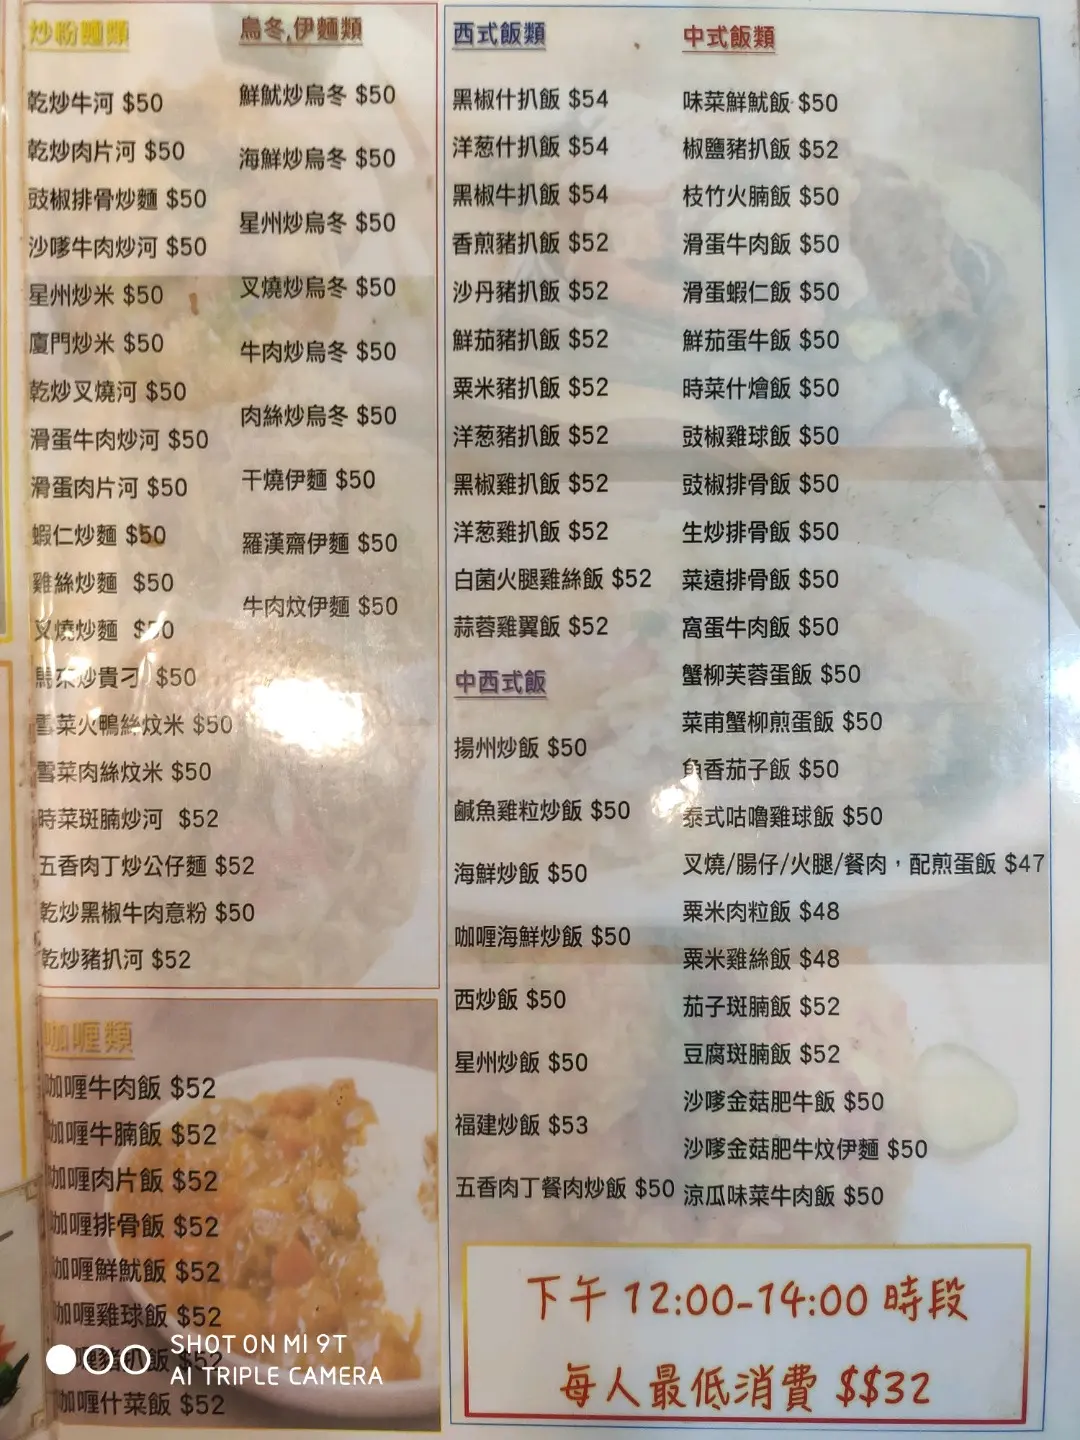 炒粉麵類
乾炒牛河 $50
乾炒肉片河 $50
豉椒排骨炒麵 $50
沙嗲牛肉炒河 $50
星州炒米 $50
廈門炒米 $50
乾炒叉燒河 $50
滑蛋牛肉炒河 $50
滑蛋肉片河 $50
蝦仁炒麵 $50
雞絲炒麵 $50
叉燒炒麵 $50
馬來炒貴刁 $50
雪菜火鴨絲炆米 $50
雪菜肉絲炆米 $50
時菜斑腩炒河 $52
五香肉丁炒公仔麵 $52
乾炒黑椒牛肉意粉 $50
乾炒豬扒河 $52
烏冬,伊麵類
鮮魷炒烏冬 $50
海鮮炒烏冬 $50
星州炒烏冬 $50
叉燒炒烏冬 $50
牛肉炒烏冬 $50
肉絲炒烏冬 $50
干燒伊麵 $50
羅漢齋伊麵 $50
牛肉炆伊麵 $50
咖喱類
咖喱牛肉飯 $52
咖喱牛腩飯 $52
咖喱肉片飯 $52
咖喱排骨飯 $52
咖喱鮮魷飯 $52
咖喱雞球飯 $52
咖喱豬扒飯 $52
咖喱什菜飯 $52
西式飯類
黑椒什扒飯 $54
洋葱什扒飯 $54
黑椒牛扒飯 $54
香煎豬扒飯 $52
沙丹豬扒飯 $52
鮮茄豬扒飯 $52
粟米豬扒飯 $52
洋葱豬扒飯 $52
黑椒雞扒飯 $52
洋葱雞扒飯 $52
白菌火腿雞絲飯 $52
蒜蓉雞翼飯 $52
中西式飯
揚州炒飯 $50
鹹魚雞粒炒飯 $50
海鮮炒飯 $50
咖喱海鮮炒飯 $50
西炒飯 $50
星州炒飯 $50
福建炒飯 $53
五香肉丁餐肉炒飯 $50
中式飯類
味菜鮮魷飯 $50
椒鹽豬扒飯 $52
枝竹火腩飯 $50
滑蛋牛肉飯 $50
滑蛋蝦仁飯 $50
鮮茄蛋牛飯 $50
時菜什燴飯 $50
豉椒雞球飯 $50
豉椒排骨飯 $50
生炒排骨飯 $50
菜遠排骨飯 $50
窩蛋牛肉飯 $50
蟹柳芙蓉蛋飯 $50
菜甫蟹柳煎蛋飯 $50
魚香茄子飯 $50
泰式咕嚕雞球飯 $50
叉燒/腸仔/火腿/餐肉，配煎蛋飯 $47
粟米肉粒飯 $48
粟米雞絲飯 $48
茄子斑腩飯 $52
豆腐斑腩飯 $52
沙嗲金菇肥牛飯 $50
沙嗲金菇肥牛炆伊麵 $50
涼瓜味菜牛肉飯 $50
下午 12:00-14:00 時段
每人最低消費 $$32
SHOT ON MI 9T
AI TRIPLE CAMERA